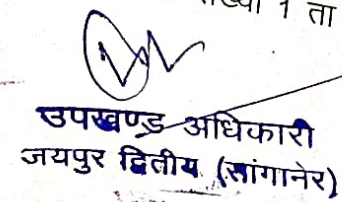 1 ता
उपखण्ड अधिकारी
जयपुर द्वितीय (सांगानेर)